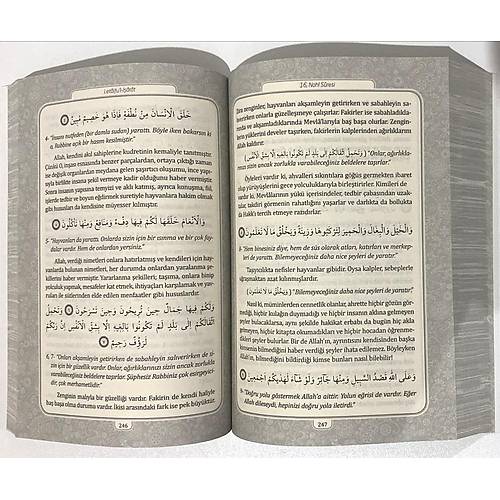 Letâifu'l-İşârât
خَلَقَ الْاِنْسَانَ مِنْ نُطْفَةٍ فَاِذَا هُوَ خَصِيمٌ مُبِينٌ
4- "İnsanı nutfeden (bir damla sudan) yarattı. Böyle iken bakarsın ki
o, Rabbine açık bir hasım kesilmiştir."
Allah, kendini akıl sahiplerine kudretinin kemaliyle tanıtmıştır.
Çünkü O, inşan esnasında benzer parçalardan, ortaya çıktığı zaman
ise değişik organlardan meydana gelen şaşırtıcı oluşumu, ince yapı-
sıyla birlikte insana şekil vermeye kadir olduğunu haber vermiştir.
Sonra insanın yapısına temyizi ve aklı katmış, ayrıca konuşma, fiil,
işlerde tedbir ve boyun eğdirmek suretiyle hayvanlara hâkim olmak
gibi hususları da kendisine müyesser kılmıştır.
وَالْاَنْعَامَ خَلَقَهَا لَكُمْ فِيهَا دِفْءٌ وَمَنَافِعُ وَمِنْهَا تَأْكُلُونَ
5- "Hayvanları da yarattı. Onlarda sizin için bir ısınma ve bir çok fay-
dalar vardır. Hem de onlardan yersiniz."
Allah, verdiği nimetleri onlara hatırlatmış ve kendileri için hay-
vanlarda bulunan nimetleri, her durumda onlardan yararlanma şe-
killerini haber vermiştir. Yararlanma şekilleri; taşıma, onlara binip
yolculuk yapmak, mesafeler kat etmek, ihtiyaçları karşılamak ve yav-
ruları ile sütlerinden elde edilen menfaatler gibi hususlardır.
وَلَكُمْ فِيهَا جَمَالٌ حِينَ تُرِيحُونَ وَحِينَ تَسْرَحُونَ وَتَحْمِلُ
اَثْقَالَكُمْ اِلٰى بَلَدٍ لَمْ تَكُونُوا بَالِغِيهِ اِلَّا بِشِقِّ الْاَنْفُسِ اِنَّ رَبَّكُمْ
لَرَؤُفٌ رَحِيمٌ
6, 7- "Onları akşamleyin getirirken de sabahleyin salıverirken de si-
zin için bir güzellik vardır. Onlar, ağırlıklarınızı sizin ancak zorlukla
varabileceğiniz beldelere taşırlar. Şüphesiz Rabbiniz çok esirgeyici-
dir, çok merhametlidir."
Zenginin malıyla bir güzelliği vardır. Fakirin de kendi haliyle
baş başa olma durumu vardır. İkisi arasındaki fark ise pek büyüktür.
246
16. Nahl Sûresi
Zira zenginler, hayvanları akşamleyin getirirken ve sabahleyin sa-
lıverirken onlarla güzelleşmeye çalışırlar. Fakirler ise sabahladıkla-
rında ve akşamladıklarında Mevlâlarıyla baş başa olurlar. Zengin-
lerin yüklerini develer taşırken, fakirlerin kalplerinden ağırlıklarını
Allah kaldırır.
(وَتَحْمِلُ اَثْقَالَكُمْ اِلٰى بَلَدٍ لَمْ تَكُونُوا بَالِغِيهِ اِلَّا بِشِقِّ الْاَنْفُسِ) "Onlar, ağırlıkla-
rınızı sizin ancak zorlukla varabileceğiniz beldelere taşırlar".
Öyleleri vardır ki, ahvalleri sıkıntılara göğüs germekten ibaret
olup yürüyüşlerini gece yolculuklarıyla birleştirirler. Kimileri de
vardır ki, Mevlâlarının yükü içindedirler, tedbirlerinden uzak-
tırlar, takdiri görmenin rahatlığını yaşarlar ve darlıkta da bollukta da
Hakk'ı tercih etmeye razıdırlar.
وَالْخَيْلَ وَالْبِغَالَ وَالْحَمِيرَ لِتَرْكَبُوهَا وَزِينَةً وَيَخْلُقُ مَا لَا تَعْلَمُونَ
8- "Hem binesiniz diye, hem de süs olarak atları, katırları ve merkep-
leri de yarattı. Bilemeyeceğiniz daha nice şeyleri de yaratır."
Taşıyıcılıkta nefisler hayvanlar gibidir. Oysa kalpler, sebeplerle
uğraşmaktan azat kılınmışlardır.
(وَيَخْلُقُ مَا لَا تَعْلَمُونَ) "Bilemeyeceğiniz daha nice şeyleri de yaratır."
Nasıl ki, müminlerin cennetlik olanlar, ahrette hiçbir gözün gör-
mediği, hiçbir kulağın duymadığı ve hiçbir insanın aklına gelmeyen
şeyler bulacaklarsa, aynı şekilde hakikat erbabı da bugün hiç akla
gelmeyen, hiçbir kitapta okunmayan ve hiçbir hocanın öğretmediği
şeyleri böyle bulurlar. Bir de Allah'ın, ayrıntısını kendisinden başka
kimsenin bilmediğini haber verdiği şeyler ihata edilemez. Böyleyken
Allah'ın, bilmediğini bildirdiği kimse bunları nasıl bilebilir!
وَعَلَى اللّٰهِ قَصْدُ السَّبِيلِ وَمِنْهَا جَائِرٌ وَلَوْ شَاءَ لَهَدٰيكُمْ اَجْمَعِينَ
9- "Doğru yolu göstermek Allah'a aittir. Yolun eğrisi de vardır. Eğer
Allah dileseydi, hepinizi doğru yola iletirdi."
247